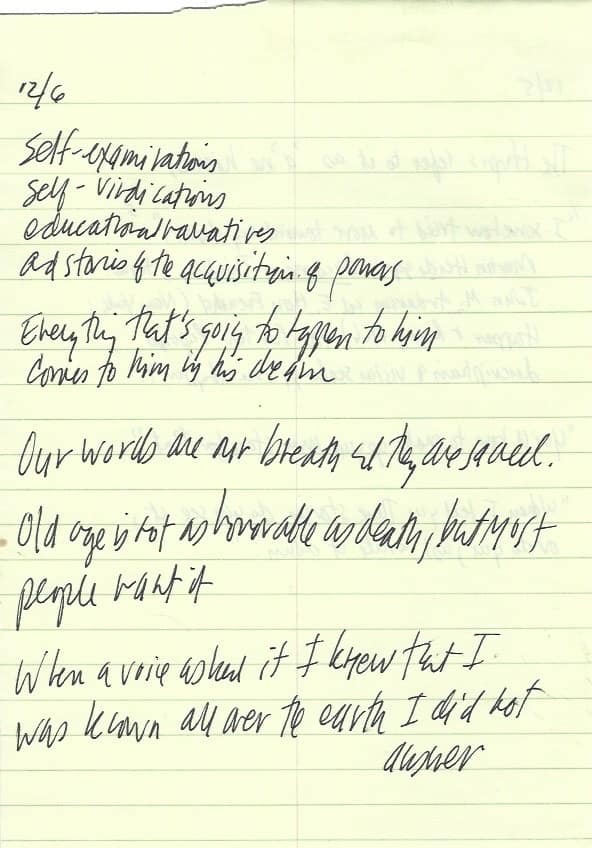 12/6
Self-examinations
Self-vindications
educational narratives
and stories of the acquisition of powers
Everything that's going to happen to him
comes to him in his dream
Our words are our breath and they are sacred.
Old age is not as honorable as death, but most
people want it
When a voice asked if I knew that I
was known all over the earth I did not
answer